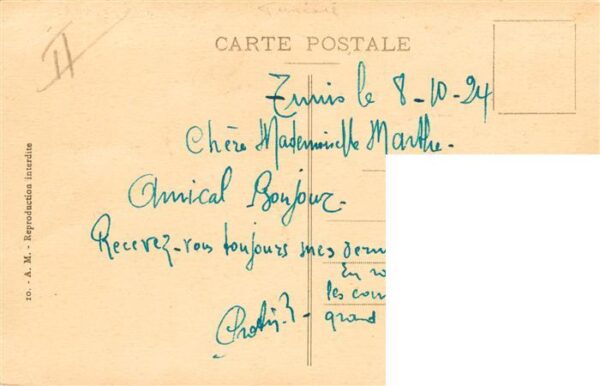 Tunisie
II
CARTE POSTALE
Tunis le 8-10-24
Chère Mademoiselle Marthe.
Amical Bonjour.
Recevez-vous toujours mes
En
les
grand
10. - A. M. - Reproduction interdite